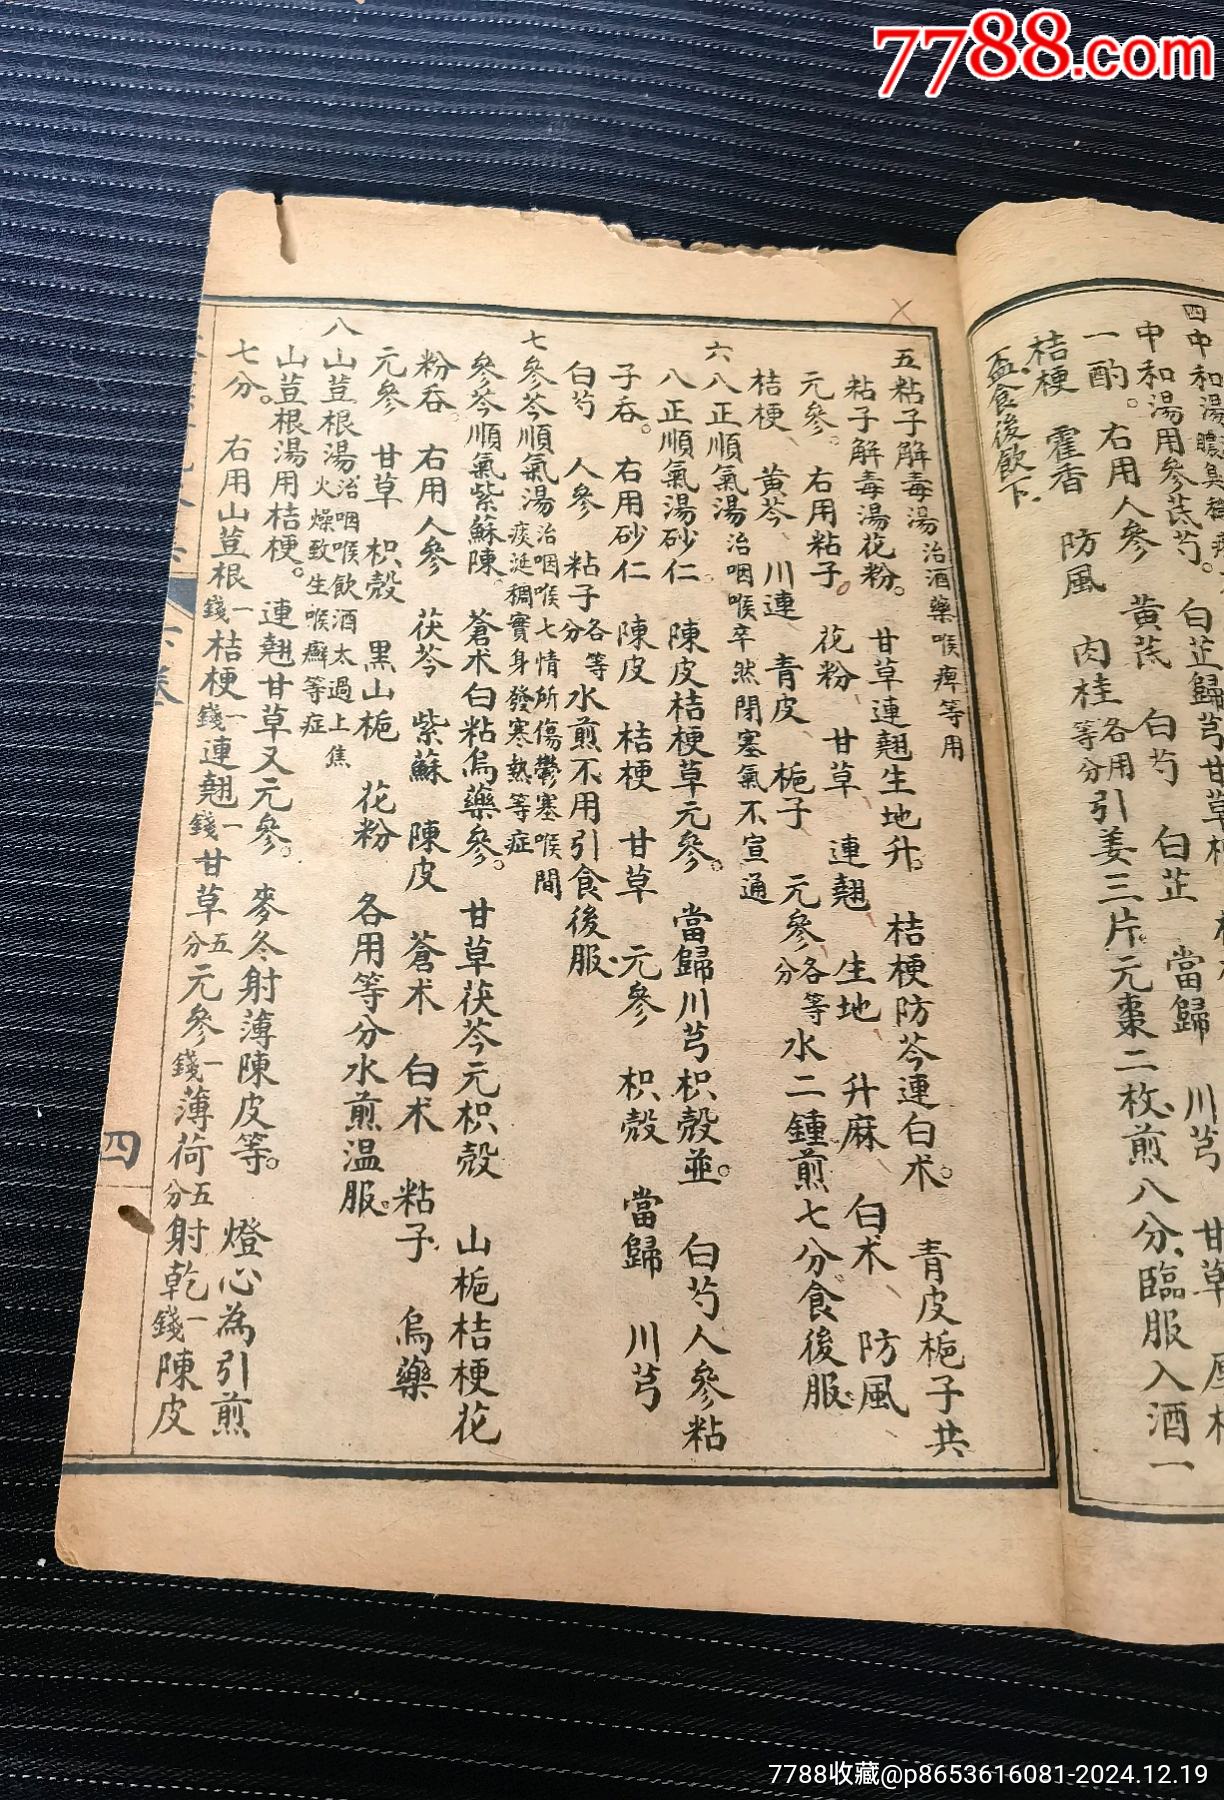 7788.com
四中和湯膿臭
中和湯用參芪芍。白芷歸芎甘草桔
一酌。右用人參 黃芪 白芍 白芷 當歸 川芎 甘草
桔梗 霍香 防風 肉桂各用等分引姜三片元棗二枚煎八分臨服入酒一
盃食後飲下
五粘子解毒湯治酒藥喉痺等用
粘子解毒湯花粉。甘草連翹生地升。桔梗防芩連白术。青皮梔子共
元參。右用粘子。花粉 甘草 連翹 生地 升麻 白术 防風
桔梗 黃芩 川連 青皮 梔子 元參各等分水二鍾煎七分食後服
六八正順氣湯治咽喉卒然閉塞氣不宣通
八正順氣湯砂仁 陳皮桔梗草元參。當歸川芎枳殼並。白芍人參粘
子吞。右用砂仁 陳皮 桔梗 甘草 元參 枳殼 當歸 川芎
白芍 人參 粘子各等分水煎不用引食後服
七參芩順氣湯治咽喉七情所傷鬱塞喉間痰涎稠實身發寒熱等症
參芩順氣紫蘇陳。蒼术白粘烏藥參。甘草茯芩元枳殼 山梔桔梗花
粉吞。右用人參 茯芩 紫蘇 陳皮 蒼术 白术 粘子 烏藥
元參 甘草 枳殼 黑山梔 花粉 各用等分水煎温服
八山荳根湯治咽喉飲酒太過上焦火燥致生喉癬等症
山荳根湯用桔梗。連翹甘草又元參。麥冬射薄陳皮等。燈心為引煎
七分。右用山荳根一錢桔梗一錢連翹一錢甘草五分元參一錢薄荷五分射乾一錢陳皮
下卷
四
7788收藏@p8653616081-2024.12.19